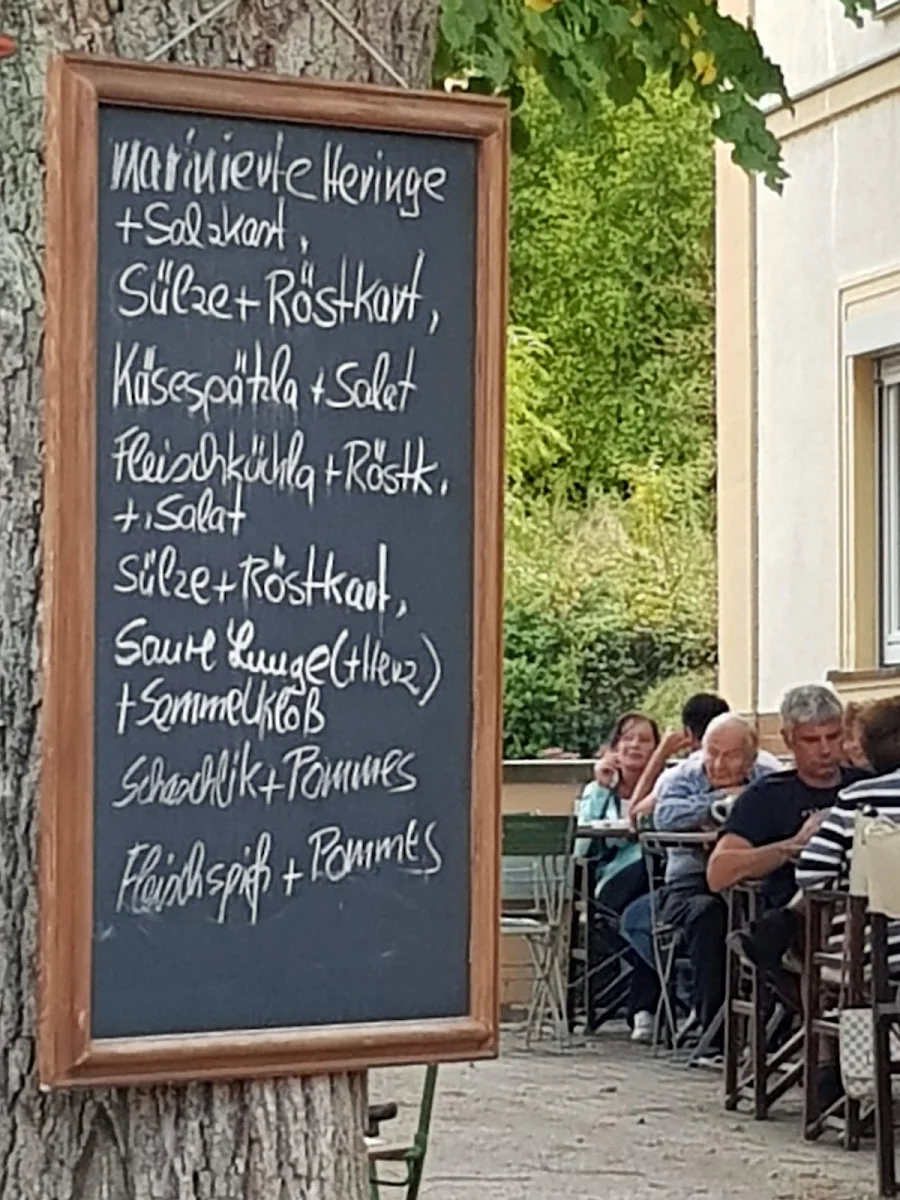 Marinierte Heringe
+ Salzkart.
Sülze + Röstkart,
Käsespätzla + Salat
Fleischküchla + Röstk.
+ Salat
Sülze + Röstkart,
Saure Lunge (+ Herz)
+ Semmelkloß
Schaschlik + Pommes
Fleischspieß + Pommes